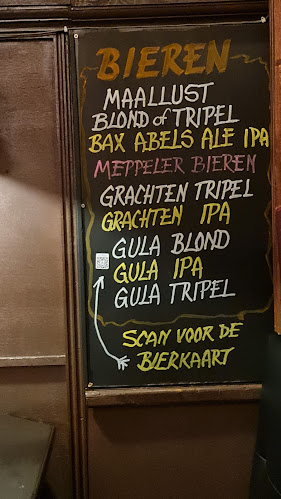 BIEREN
MAALLUST
BLOND of TRIPEL
BAX ABELS ALE IPA
MEPPELER BIEREN
GRACHTEN TRIPEL
GRACHTEN IPA
GULA BLOND
GULA IPA
GULA TRIPEL
SCAN VOOR DE
BIERKAART